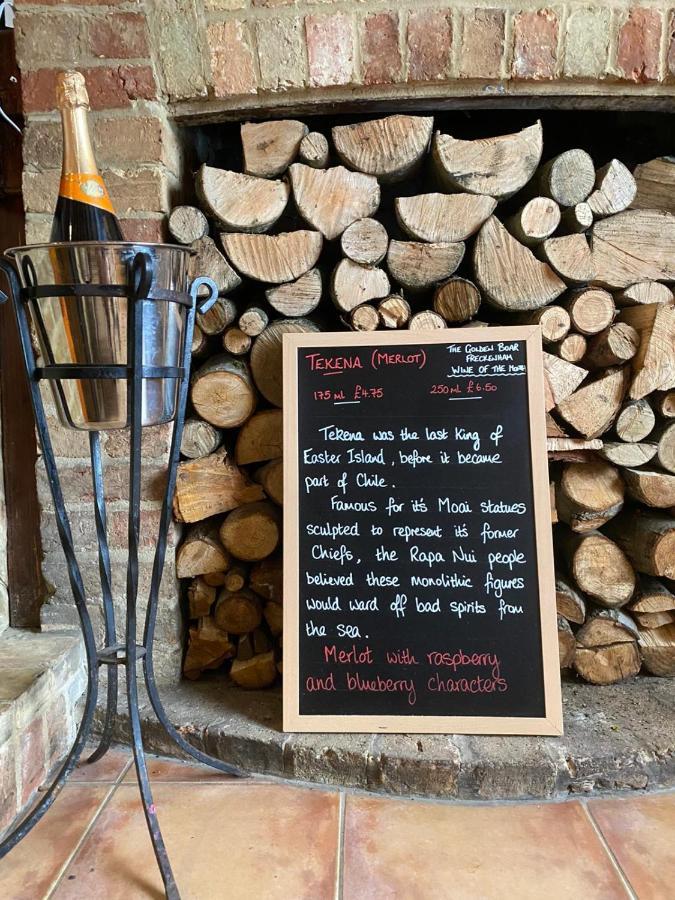 TEKENA (MERLOT)
THE GOLDEN BOAR
FRECKENHAM
WINE OF THE MONTH
175 ml £4.75
250 ml £6.50
Tekena was the last king of
Easter Island, before it became
part of Chile.
Famous for it's Moai statues
sculpted to represent it's former
Chiefs, the Rapa Nui people
believed these monolithic figures
would ward off bad spirits from
the sea.
Merlot with raspberry
and blueberry characters